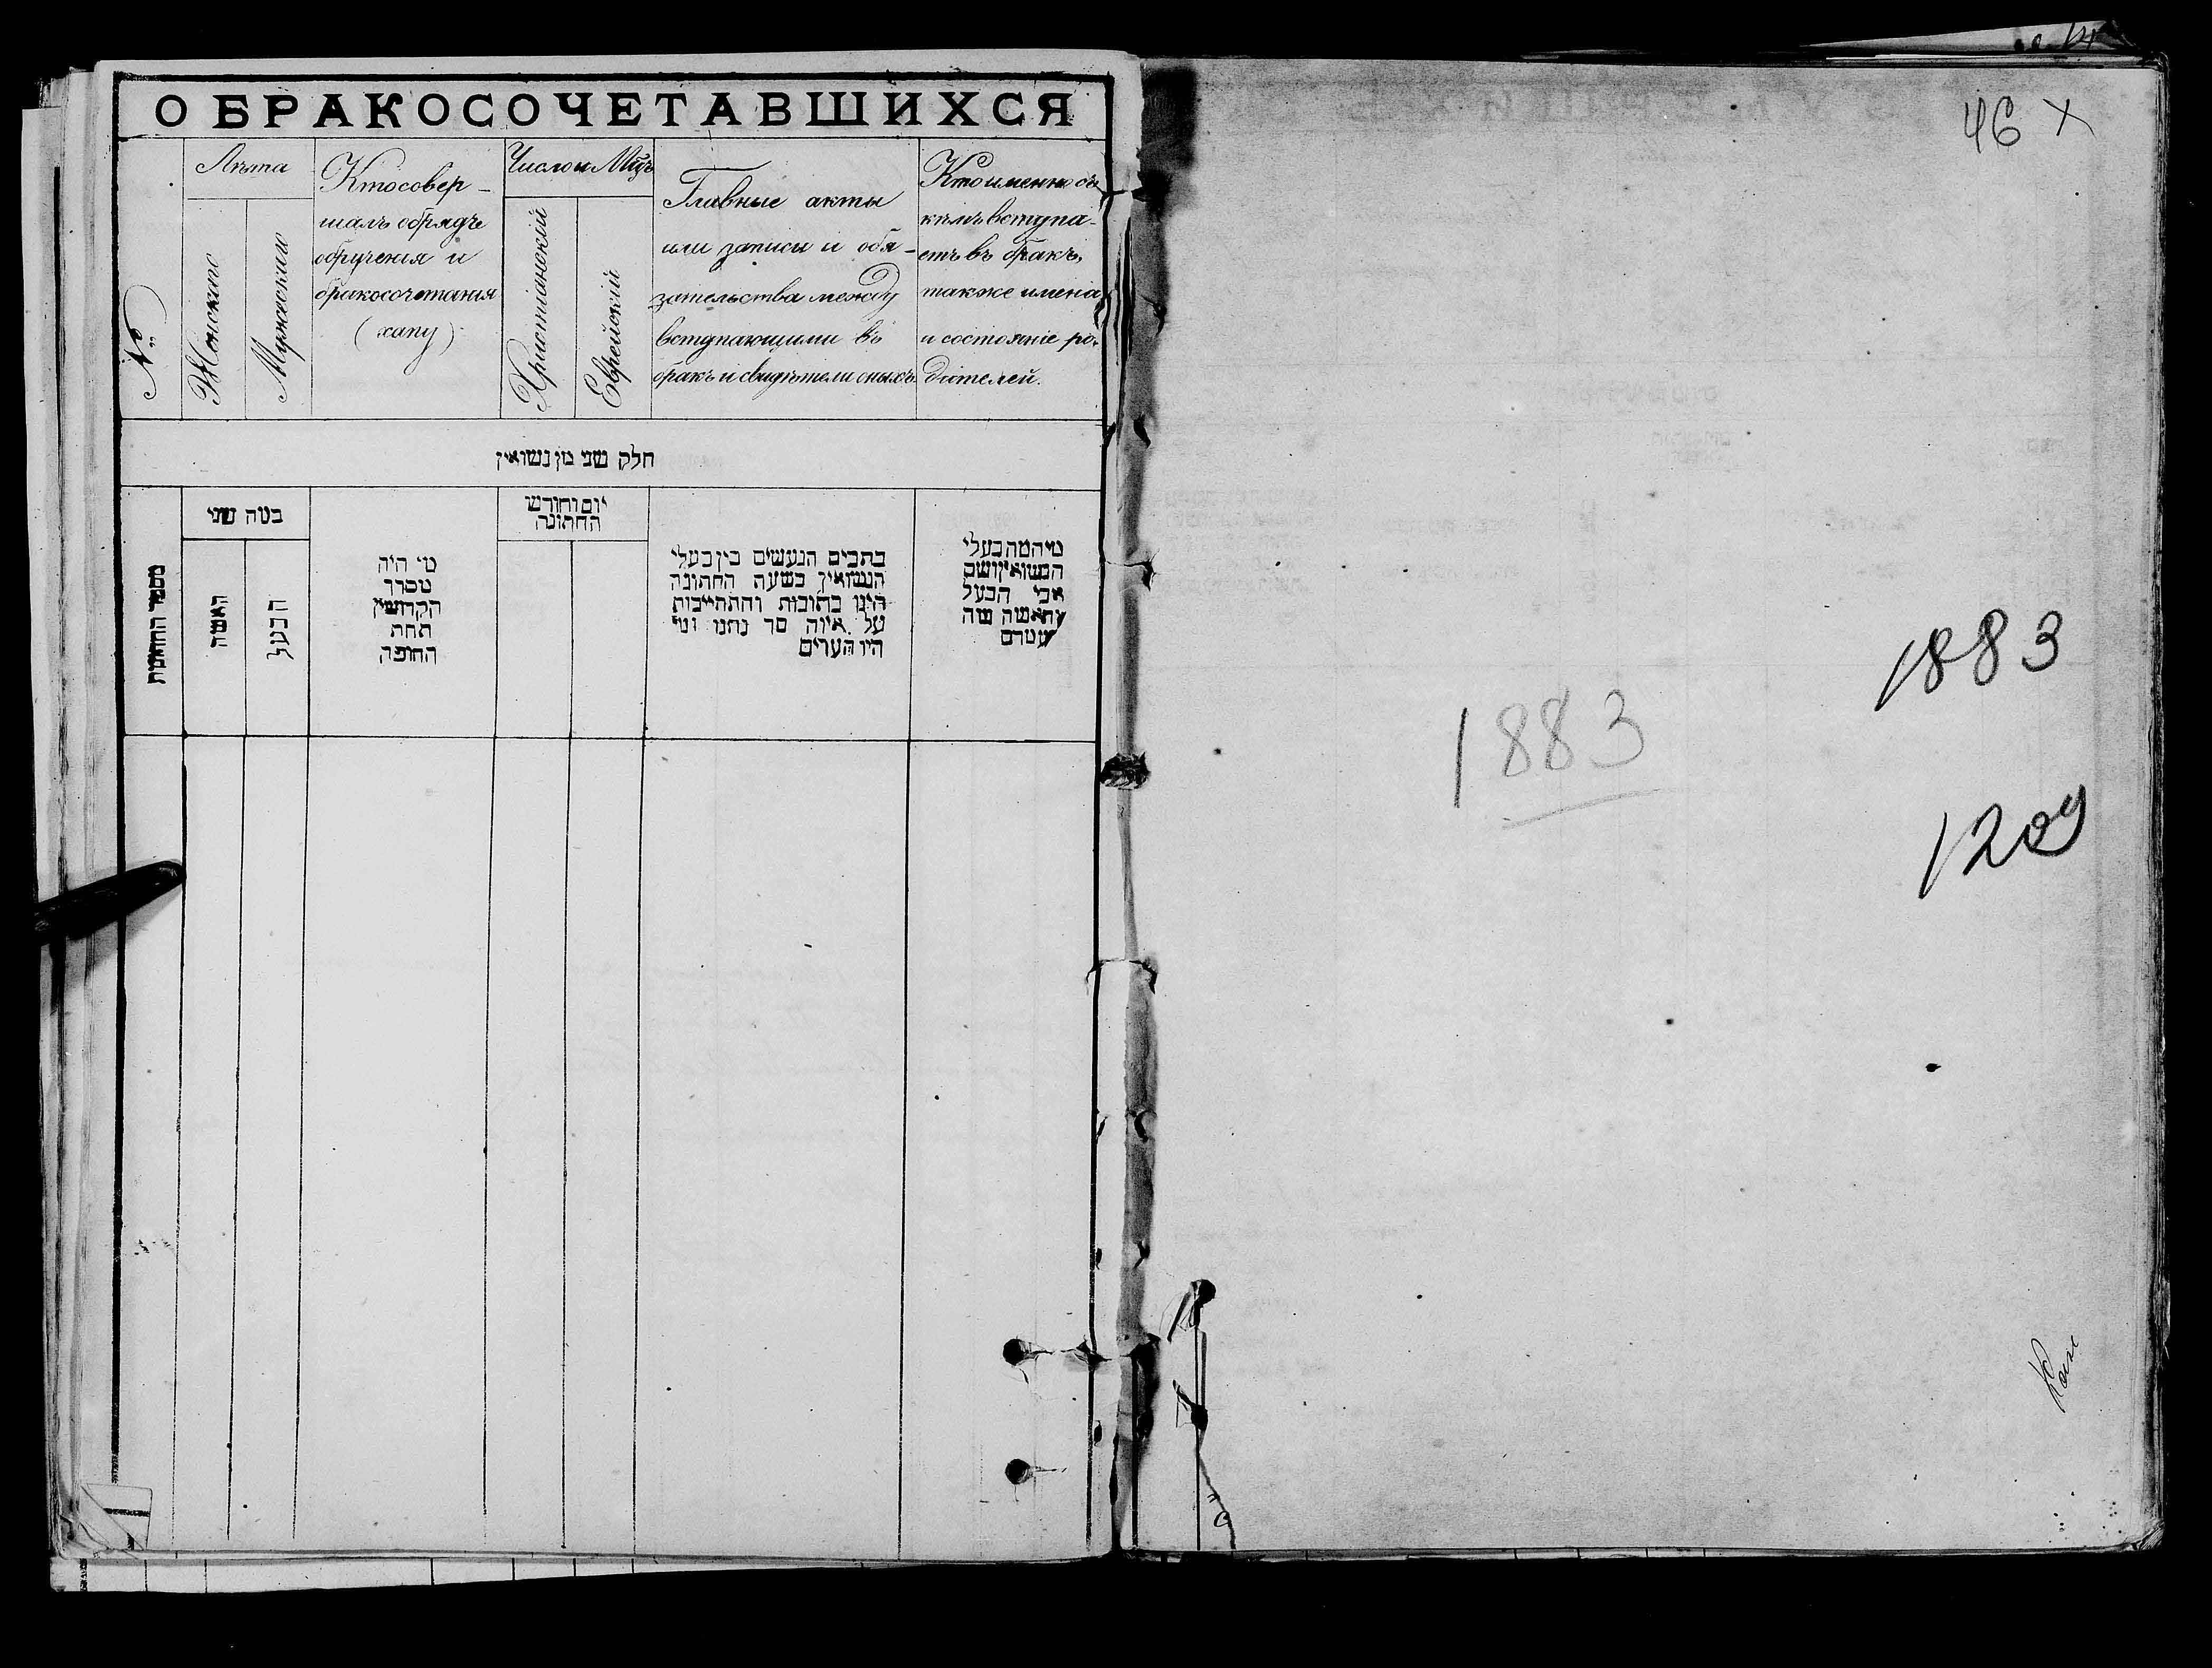 О БРАКОСОЧЕТАВШИХСЯ
№
Лѣта
Женскаго
Мужескаго
Кто совер-
шалъ обрядъ
обрученія и
бракосочетанія
(хапу)
Число и Мѣцъ
Христіанскій
Еврейскій
Главные акты
или записи и обя-
зательства между
вступающими въ
бракъ и свидѣтели оныхъ.
Кто именно съ
кѣмъ вступа-
етъ въ бракъ,
также имена
и состояніе ро-
дителей.
חלק שני מן נשואין
מספר החתונות
כמה שני
האשה
הבעל
מי היה
מסדר
הקדושין
תחת
החופה
יום וחודש
החתונה
כתבים הנעשים בין בעלי
הנשואין בשעה החתונה
היינו כתובות והתחייבות
על איזה סך נתנו ומי
היו העדים
מי המה בעלי
הנשואין ושם
אבי הבעל
והאשה מה
מעמדם
46 X
1883
1883
1209